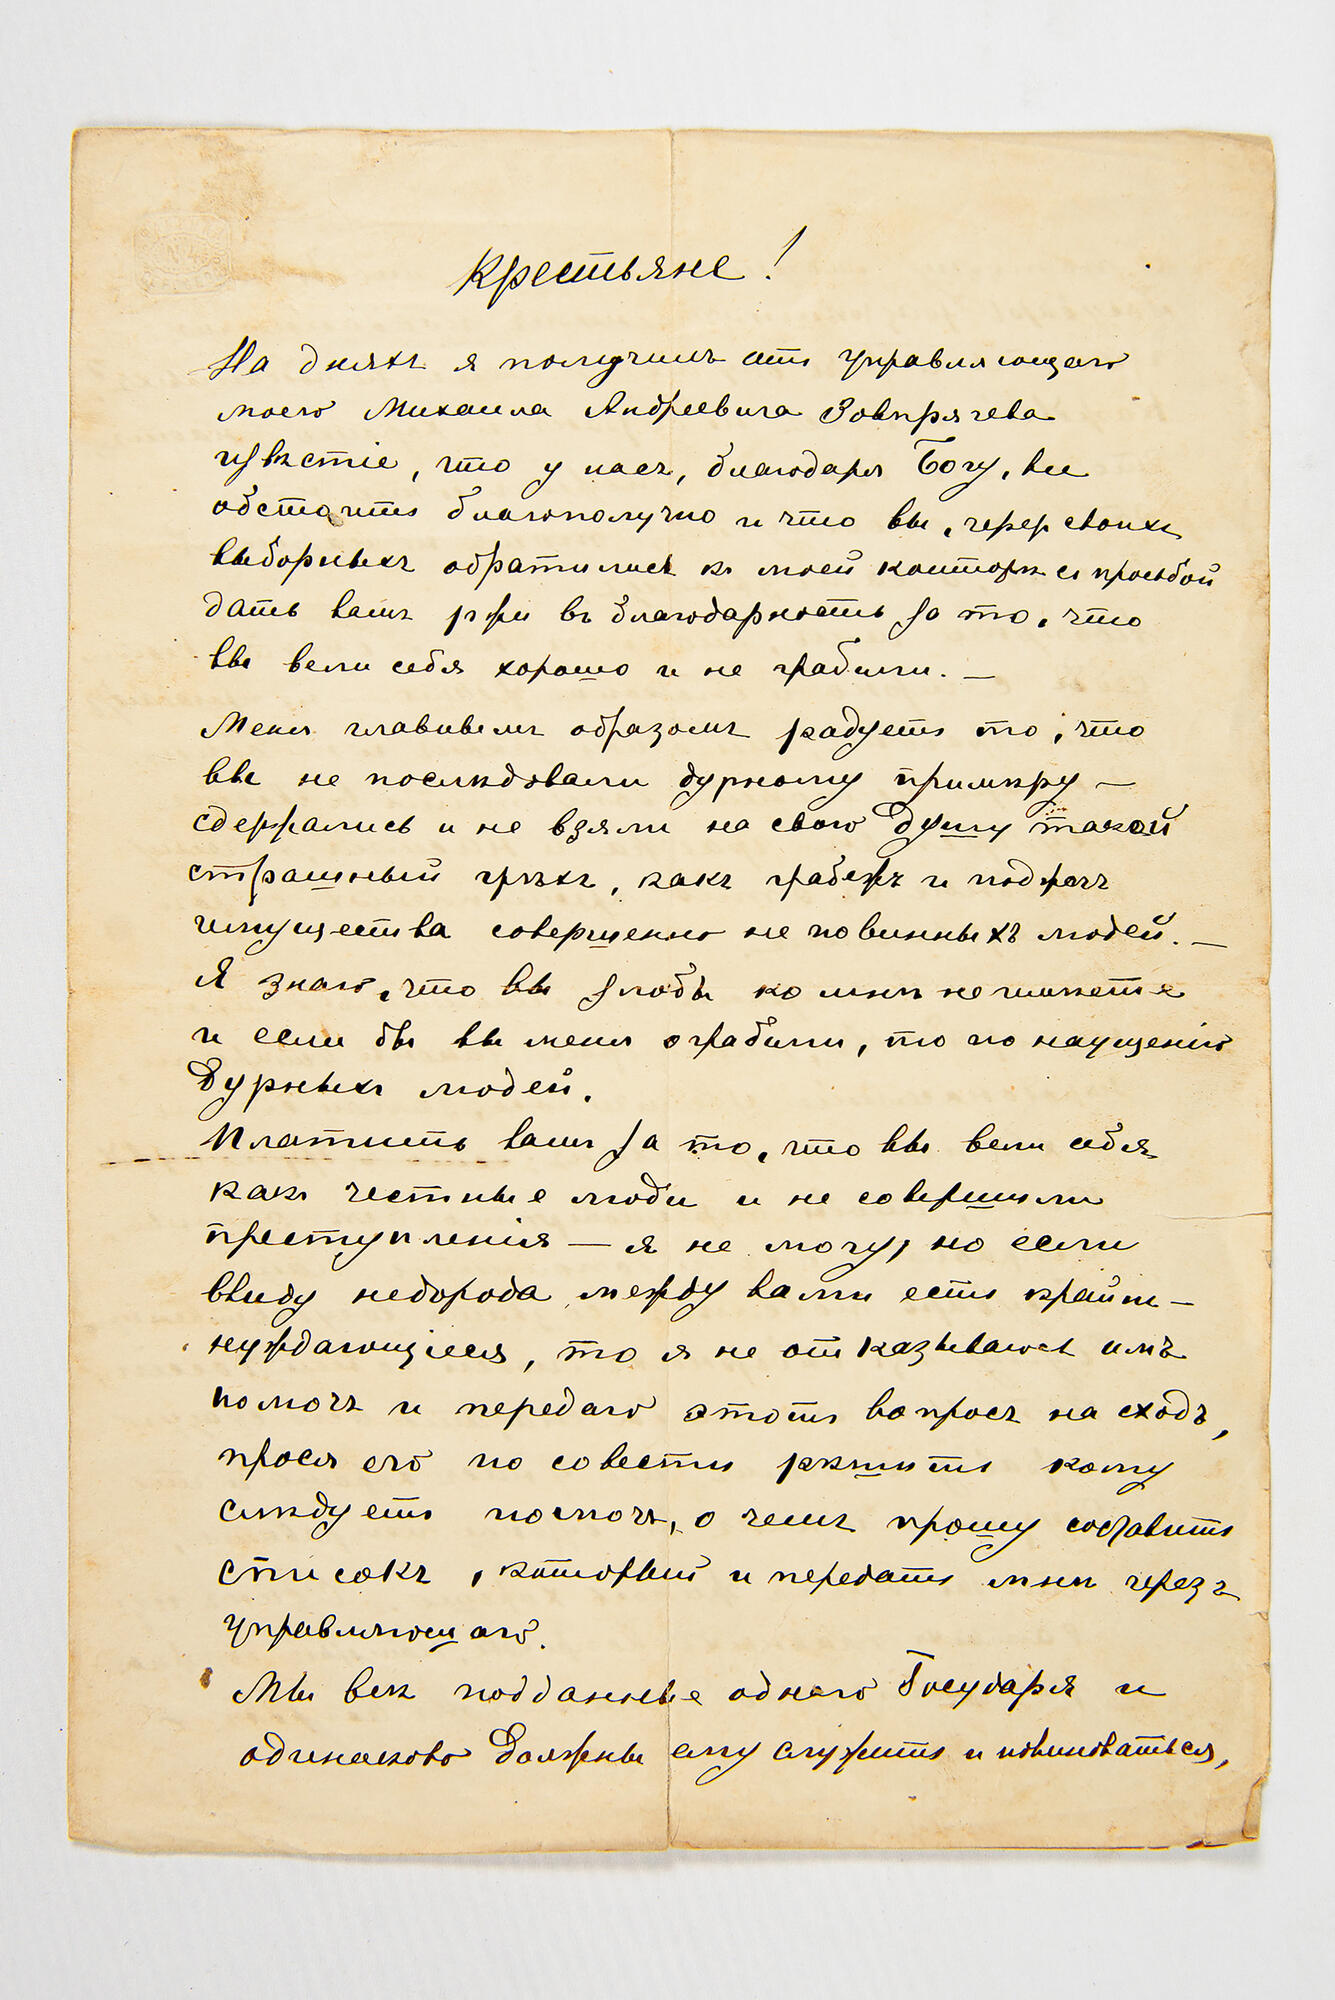 Крестьяне!
На дняхъ я получилъ отъ управляющаго
моего Михаила Андреевича
извѣстіе, что у насъ, благодаря Богу, все
обстоитъ благополучно и что вы, черезъ своихъ
выборныхъ обратились къ моей конторѣ съ просьбой
дать вамъ ржи въ благодарность за то, что
вы вели себя хорошо и не грабили. —
Меня главнымъ образомъ радуетъ то, что
вы не послѣдовали дурному примѣру —
сдержались и не взяли на свою душу такой
страшный грѣхъ, какъ грабежъ и поджогъ
имущества совершенно неповинныхъ людей. —
Я знаю, что вы злобы ко мнѣ не имѣете
и если бы вы меня ограбили, то по наущенію
дурныхъ людей.
Платить вамъ за то, что вы вели себя
какъ честные люди и не совершили
преступленія — я не могу, но если
ввиду недорода между вами есть крайне-
нуждающіеся, то я не отказываюсь имъ
помочь и передаю этотъ вопросъ на сходъ,
прося его по совести рѣшить кому
слѣдуетъ помочь, о чемъ прошу составить
списокъ, который и передать мнѣ черезъ
управляющаго.
Мы всѣ подданные одного Государя и
одинаково должны ему служить и повиноваться,